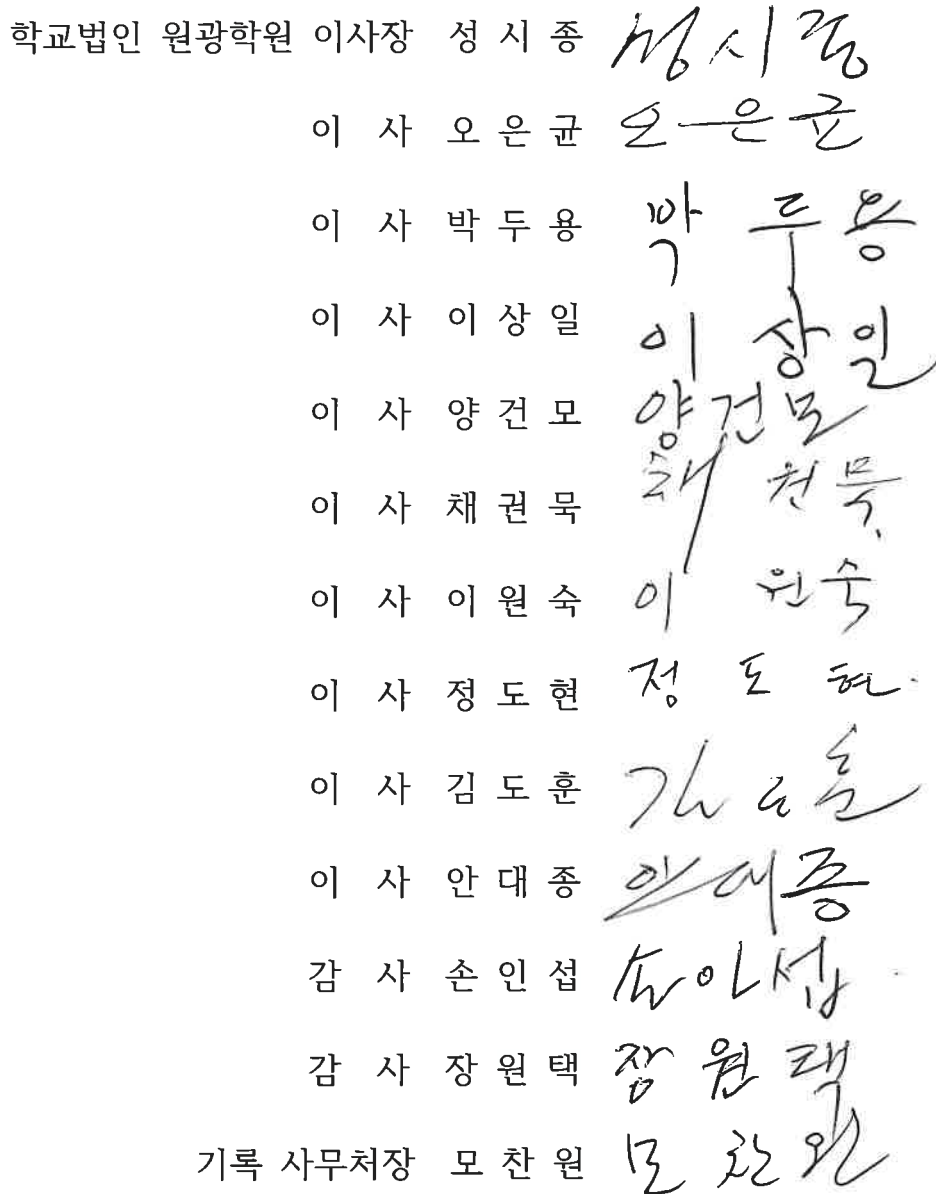 학교법인 원광학원 이사장 성 시 종 성시종
이 사 오 은 균 오은균
이 사 박 두 용 박 두 용
이 사 이 상 일 이 상 일
이 사 양 건 모 양건모
이 사 채 권 묵 채 권묵
이 사 이 원 숙 이 원숙
이 사 정 도 현 정 도 현
이 사 김 도 훈 김도훈
이 사 안 대 종 안대종
감 사 손 인 섭 손인섭
감 사 장 원 택 장 원 택
기록 사무처장 모 찬 원 모 찬원